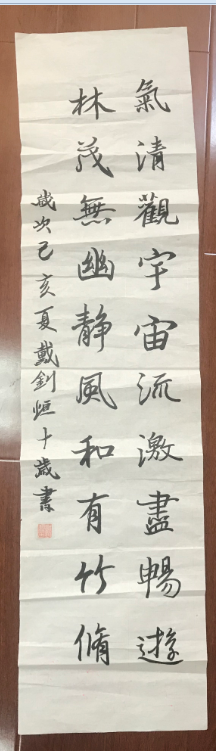 氣清觀宇宙流激盡暢遊
林茂無幽静風和有竹脩
歲次己亥夏戴釗恒十歲書